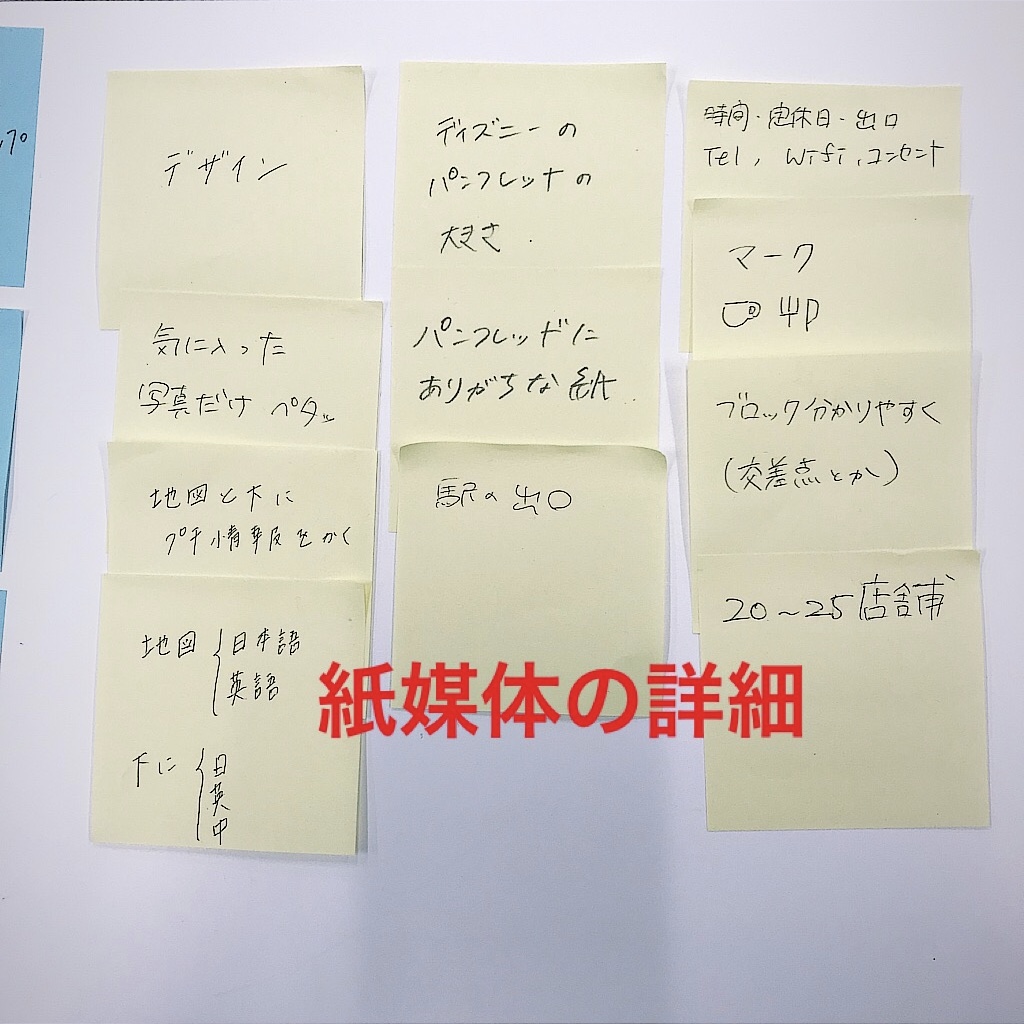 デザイン
気に入った
写真だけ ペタッ
地図と下に
プチ情報をかく
地図 日本語
英語
下に 日
英
中
ディズニーの
パンフレットの
大きさ.
パンフレッドに
ありがちな紙.
駅の出口
時間・定休日・出口
Tel, Wifi, コンセント
マーク
ブロック分かりやすく
(交差点とか)
20~25店舗
紙媒体の詳細